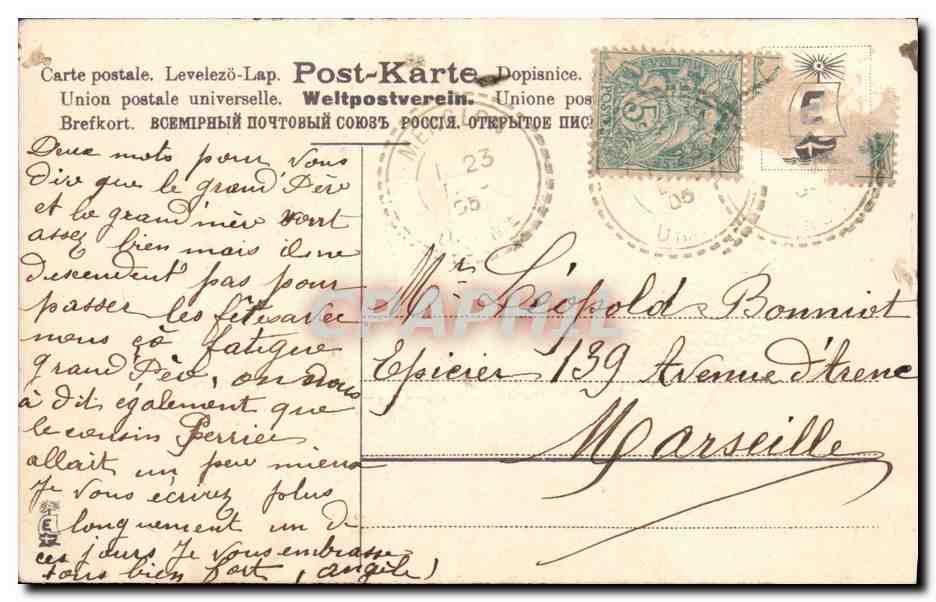 Carte postale. Levelezö-Lap. Post-Karte. Dopisnice.
Union postale universelle. Weltpostverein. Unione pos
Brefkort. ВСЕМІРНЫЙ ПОЧТОВЫЙ СОЮЗЪ РОССІЯ. ОТКРЫТОЕ ПИС
23
05
05
5c
POSTES
E
Deux mots pour vous
dire que le grand' Père
et la grand'mère vont
assez bien mais ils ne
descendent pas pour
passer les fêtes avec
nous ça fatigue
grand Père, on nous
à dit également que
le cousin Perrier
allait un peu mieux
Je vous écrirez plus
longuement un de
ces jours Je vous embrasse
tous bien fort (angèle)
E
Mr. Léopold Bonniot
Epicier 139 Avenue d'Arenc
Marseille
CPAPHIL